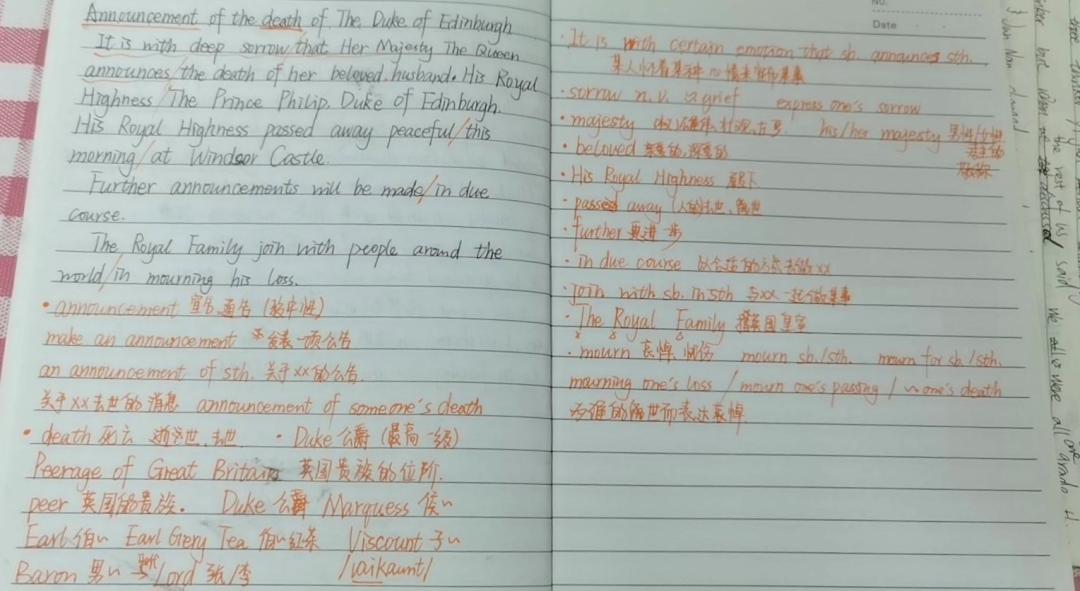 Announcement of the death of The Duke of Edinburgh
It is with deep sorrow that Her Majesty The Queen
announces/the death of her beloved husband. His Royal
Highness/The Prince Philip. Duke of Edinburgh.
His Royal Highness passed away peaceful/this
morning/at Windsor Castle.
Further announcements will be made/in due
course.
The Royal Family join with people around the
world/in mourning his loss.
• announcement 宣告,通告 (
make an announcement 发表一项公告
an announcement of sth. 关于xx的公告.
关于xx去世的消息 announcement of someone's death
• death 死亡 逝世,去世 • Duke 公爵 (最高一级)
Peerage of Great Britain 英国贵族的位阶.
peer 英国的贵族. Duke 公爵 Marquess 侯~
Earl 伯~ Earl Grey Tea 伯~红茶 Viscount 子~
Baron 男~ Lord 张/李 /vaikaunt/
No.
Date
• It is with certain emotion that sb. announces sth.
某人怀着某种心情来宣布某事
• sorrow n.v. ≈grief express one's sorrow
• majesty his/her majesty
• beloved
敬称
• His Royal Highness 殿下
• passed away (人的)去世,
• further 更进一步
• in due course
• join with sb. in sth 与xx一起做某事
• The Royal Family 指英国皇室
• mourn 哀悼, mourn sb./sth. mourn for sb./sth.
mourning one's loss / mourn one's passing / ~one's death
为谁的逝世而表达哀悼.
the rest of us said